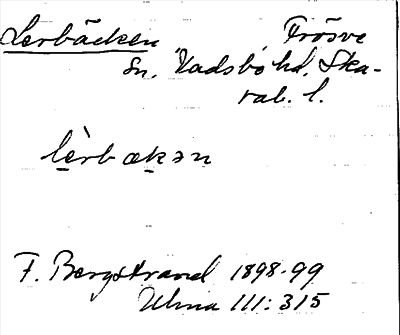 Lerbäcken Frösve
Sn, Vadsbo hd, Ska-
rab. l.
lè̱rbæḵən
F. Bergstrand 1898-99
Ulma 111:315